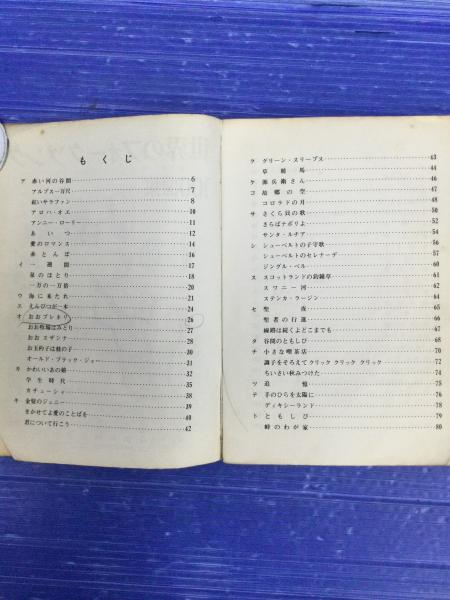 もくじ
ア 赤い河の谷間 6
アルプス一万尺 7
紅いサラファン 8
アロハ・オエ 10
アンニー・ローリー 11
あいつ 12
愛のロマンス 14
赤とんぼ 16
イ 一週間 17
泉のほとり 18
一万の一万倍 20
ウ 海に来たれ 21
エ えんぴつが一本 24
オ おおブレネリ 26
おお牧場はみどり
おおスザンナ
お玉杓子は蛙の子
オールド・ブラック・ジョー 31
カ かわいいあの娘 32
学生時代 35
カチューシャ 38
キ 金髪のジェニー 39
まかせてよ愛のことばを 40
君について行こう 42
ク グリーン・スリーブス 43
草競馬 44
ケ 
コ 故郷の空 47
コロラドの月 48
サ さくら貝の歌 50
さらばナポリよ 52
サンタ・ルチア 54
シ シューベルトの子守歌 56
シューベルトのセレナーデ 57
ジングル・ベル 58
ス スコットランドの釣鐘草 60
スワニー河 62
ステンカ・ラージン 64
セ 聖夜
聖者の行進 66
線路は続くよどこまでも 67
タ 谷間のともしび 68
チ 小さな喫茶店 70
調子をそろえてクリック クリック クリック 72
ちいさい秋みつけた 74
ツ 追憶 75
テ 手のひらを太陽に 76
ディキシーランド 78
ト ともしび 79
峠のわが家 80